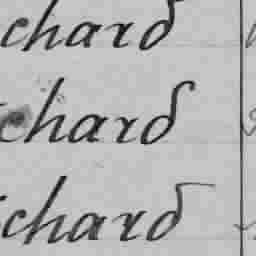 chard
chard
chard